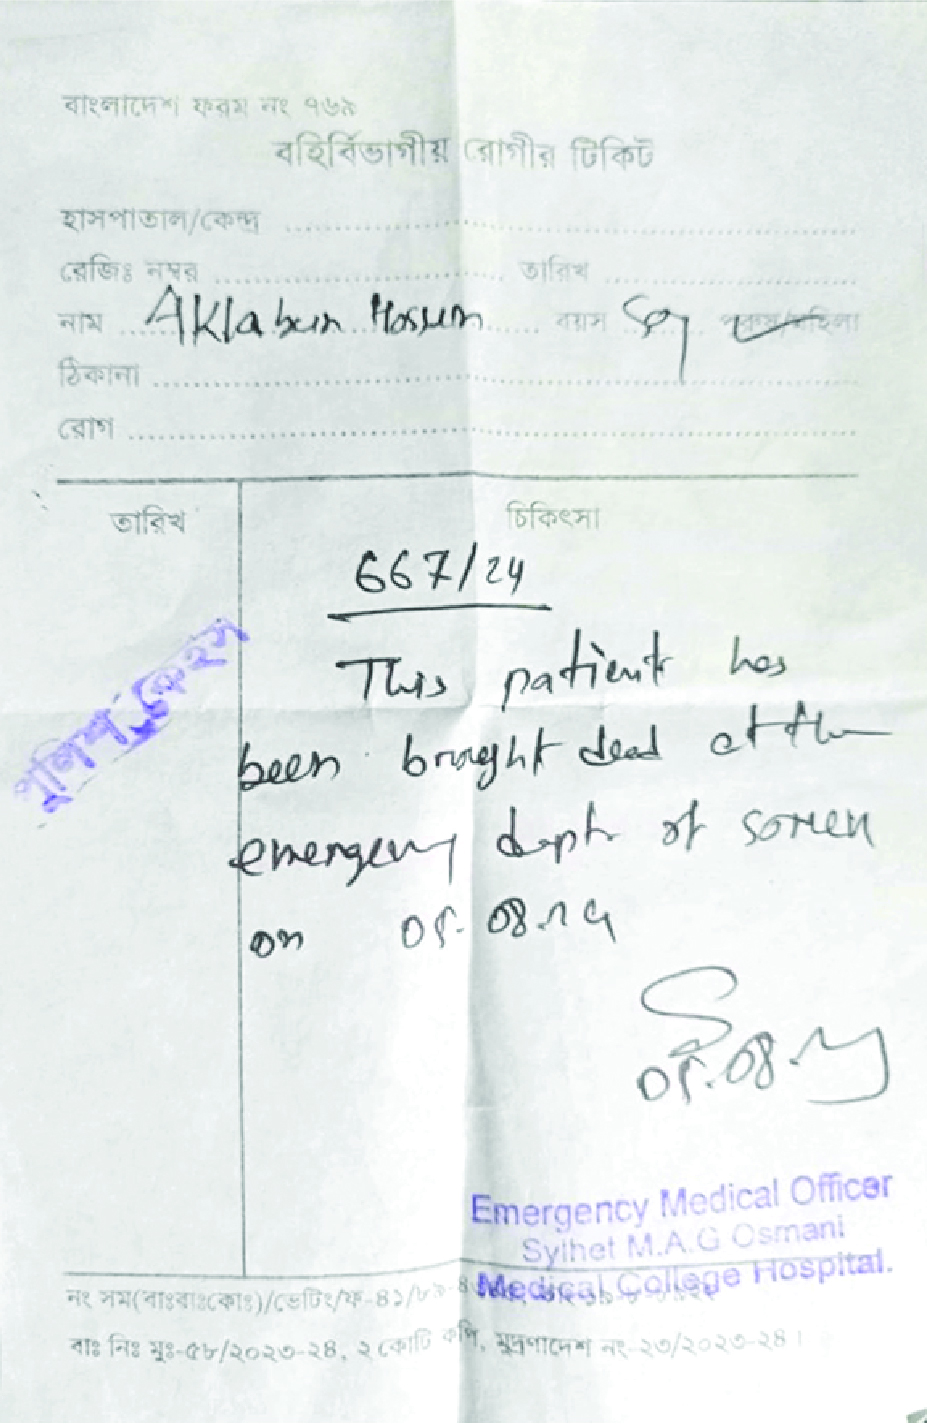 বাংলাদেশ ফরম নং ৭৬৯
বহির্বিভাগীয় রোগীর টিকিট
হাসপাতাল/কেন্দ্র
রেজিঃ নম্বর তারিখ
নাম Aklabur Hossen বয়স পুরুষ/মহিলা
ঠিকানা
রোগ
তারিখ চিকিৎসা
667/24
পুলিশ কেইস
This patient has
been brought dead at the
emergency dept of
on 05.08.24
05.08.24
Emergency Medical Officer
Sylhet M.A.G Osmani
Medical College Hospital.
নং সম(বাঃবাঃকোঃ)/ভেটিং/ফ-৪১/৮৯-
বাঃ নিঃ মুঃ-৫৮/২০২৩-২৪, ২ কোটি কপি, মুদ্রণাদেশ নং-২৩/২০২৩-২৪।